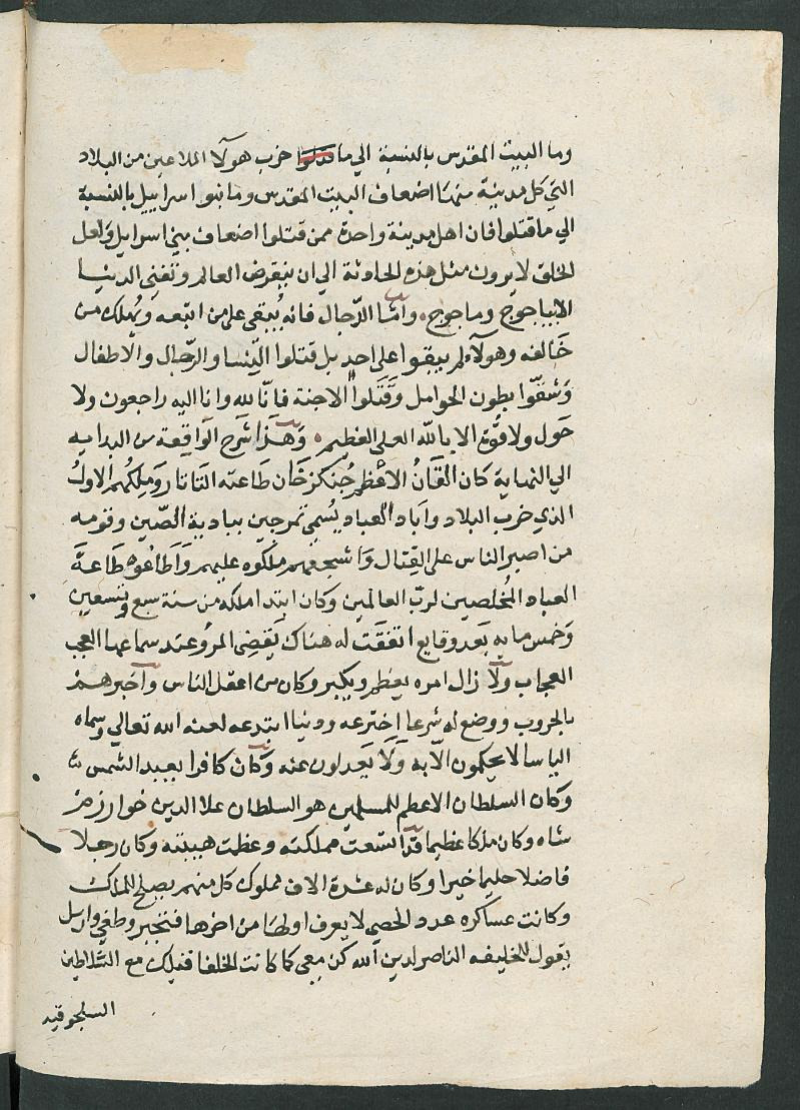 وما البيت المقدس بالنسبة الي ما قتلوا خرب هولآ الملاعين من البلاد
التي كل مدينة منها اضعاف البيت المقدس وما بنوا اسراييل بالنسبة
الي ما قتلوا فان اهل مدينة واحدة ممن قتلوا اضعاف بني اسراييل ولعل
الخلق لا يرون مثل هذه الحادثة الي ان ينقرض العالم وتفني الدنيا
الا ياجوج وماجوج. وأمّا الدّجال فانه يُبقي على من اتبعه ويُهلك من
خَالفه وهولآء لم يبقوا على احدٍ بل قتلوا النِّسا والرّجال والاطفال
وَشقّوا بطون الحوامل وَقَتَلوا الاجنة فانّا لله وانا اليه راجعون ولا
حَول ولا قوُّة الا باللّه العلي العظيم. وَهَذا شَرح الوَاقعة من البدايه
الي النهاية كان القَانُ الاعظم جُنكزخَان طَاعته التَاتار وَملكُهم الاوّلُ
الذي خرب البلاد وابَاد العباد يُسَمي تمرجين ببادية الصّين وقومه
من اصبر الناس على القِتال وَاشجعهم ملكوه عليهم وَاَطَاعُوه طَاعَةَ
العباد المُخلصين لربّ العالمين وكان ابتدا ملكه من سنة سبع وتسعين
وَخمس مايه بَعد وقايع اتفقَت له هناك يَقضِي المرُو عند سماعها العجب
العجاب ولَا زال امره يعظم ويكبر وكان من اعقل الناس وآخبرهم
بالحروب ووضع له شرعا اِخترعه ودينا ابتدعه لعنه الله تعالي وسماه
الياسا لا يحكمون الا به وَلَا يَعدلون عنه وَكَانَ كافرا يعبد الشمس
وكان السلطان الاعظم للمسلمين هو السلطان علا الدين خوارزم
شاه وكان ملكا عظيما قَد اتسعت مملكته وعظمت هيبته وكان رجلا
فاضلا حليما خيرا وكان له عشرة الاف مملوك كل منهم يصلح للملك
وكانت عساكره عدد الحصي لا يعرف اولها من اخرها فتجبر وطغي وارسل
يقول للخليفه الناصر لدين الله كن معي كما كانت الخلفا قبلك مع السّلاطين
السلجوقيه